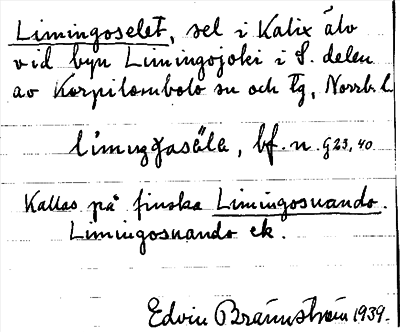 Limingoselet, sel i Kalix älv
vid byn Limingojoki i S. delen
av Korpilombolo sn och tg, Norrb. l.
limiŋgasäla, bf. n. G23, 40
Kallas på finska Limingosuando.
Limingosuando ek.
Edvin Brännström 1939.